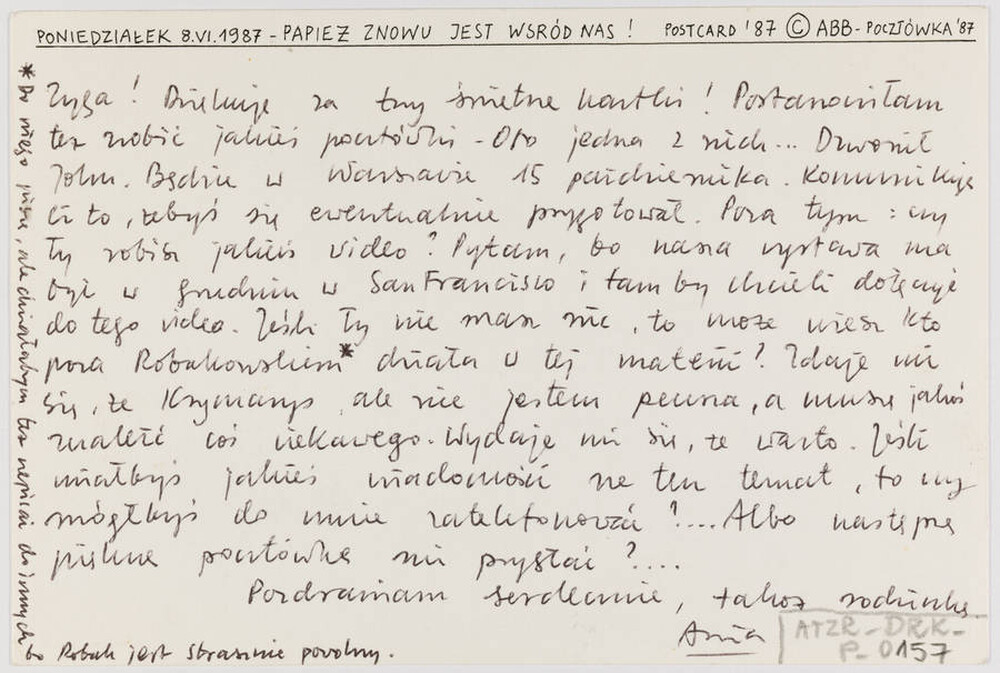 PONIEDZIAŁEK 8.VI.1987 - PAPIEŻ ZNOWU JEST WŚRÓD NAS! POSTCARD '87 © ABB - POCZTÓWKA '87
Zyga! Dziękuję za trzy świetne kartki! Postanowiłam
też robić jakieś pocztówki - Oto jedna z nich... Dzwonił
John. Będzie w Warszawie 15 października. Komunikuję
Ci to, żebyś się ewentualnie przygotował. Poza tym: czy
Ty robisz jakieś video? Pytam, bo nasza wystawa ma
być w grudniu w San Francisco i tam by chcieli dołączyć
do tego video. Jeśli Ty nie masz nic, to może wiesz kto
poza Robakowskim* działa w tej materii? Zdaje mi
się, że Krzymanys, ale nie jestem pewna, a muszę jakoś
znaleźć coś ciekawego. Wydaje mi się, że warto. Jeśli
miałbyś jakieś wiadomości na ten temat, to czy
mógłbyś do mnie zatelefonować?.... Albo następną
piękną pocztówkę mi przysłać?....
Pozdrawiam serdecznie, także rodzinkę.
Ania
* Do niego piszę, ale chciałabym też napisać do innych
bo Robak jest strasznie powolny.
ATZR-DRK-
P-0157